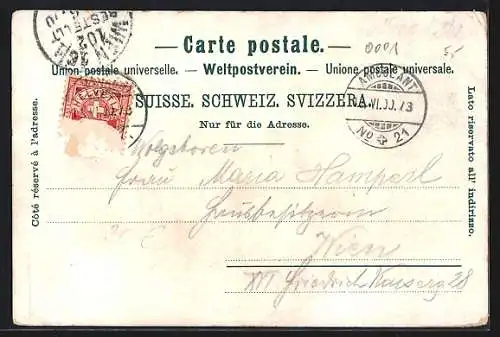 Carte postale.
0001
Union postale universelle. — Weltpostverein. — Unione postale universale.
SUISSE. SCHWEIZ. SVIZZERA.
Nur für die Adresse.
Côté réservé à l'adresse.
Lato riservato all' indirizzo.
HELVETIA
AMBULANT
VI.00.
No 21
WIEN
BESTELLT
Frau Maria Hamperl
Hausbesitzerin
Wien
XVI Friedrich Kaiserg 28